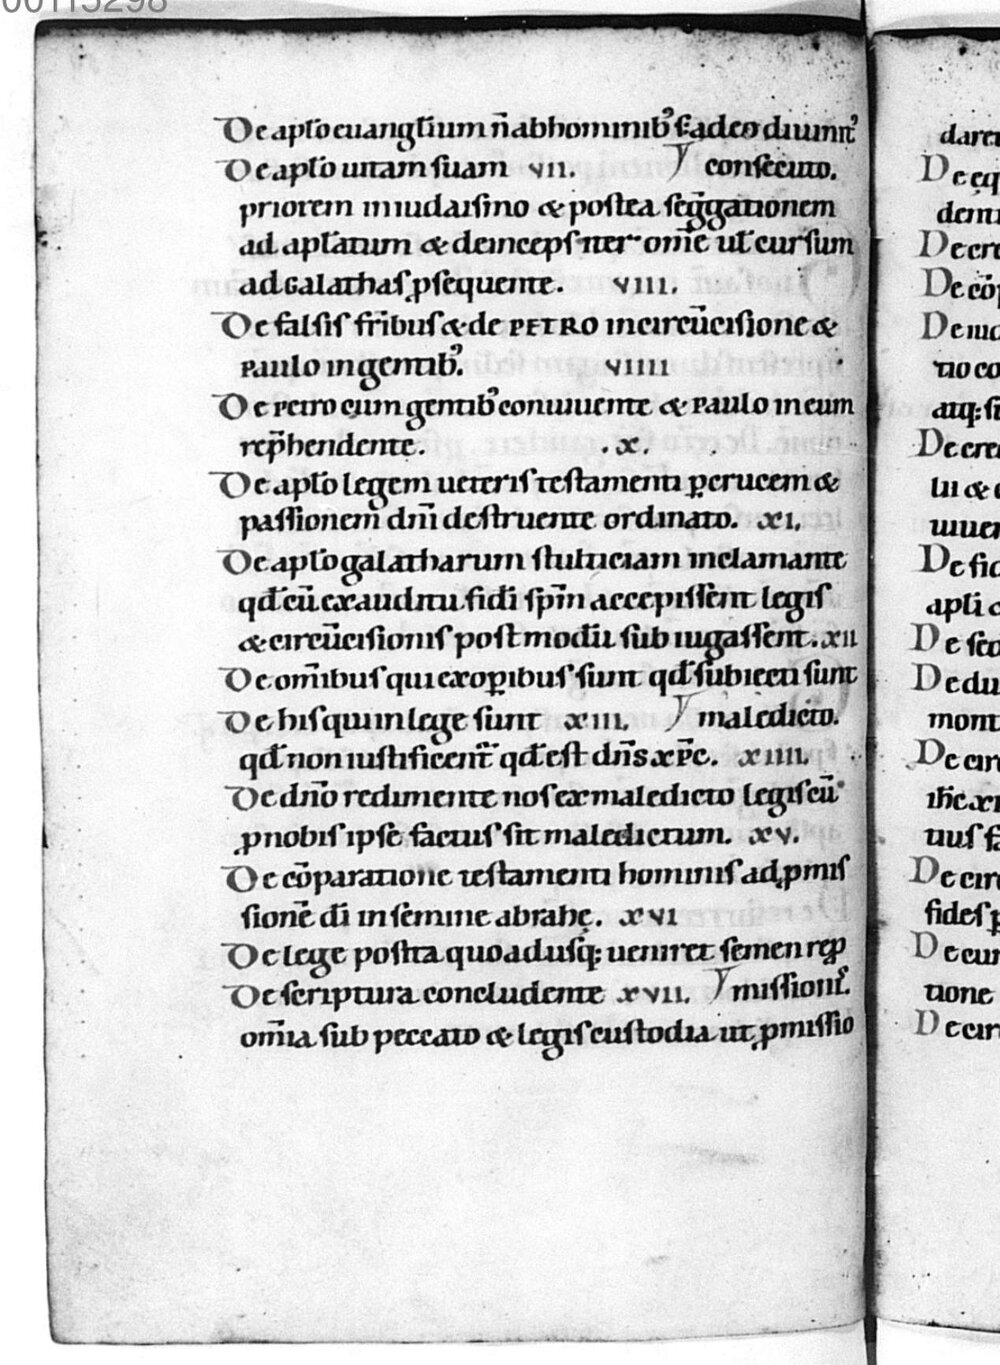 De apl̄o euangliū̄m n̄ abhominibꝰ sed a deo diuinitꝰ
De apl̄o uitam suam vii. consecuto.
priorem iniudaismo & postea seg̃gationem
ad apl̄atum & deinceps iter om̄e ut cursum
ad Galathas ꝓsequente. viii.
De falsis fr̄ibus & de PETRO in circūcisione &
Paulo in gentibꝰ. viiii
De Petro cum gentibꝰ conuiuente & Paulo in eum
rep̄hendente. .x.
De apl̄o legem ueteris testamenti ꝑ crucem &
passionem dn̄i destruente ordinato. xi.
De apl̄o galatharum stulticiam inclamante
qđ cū ex auditu fidei sp̄m accepissent legis
& circūcisionis post modū sub iugassent. xii
De om̄ibus qui ex oꝑibus sunt qđ subiecti sunt
De his qui in lege sunt xiii. maledicto.
qđ non iustificent̃ qđ est dn̄s xp̄c. xiiii.
De dn̄o redimente nos ex maledicto legis cū
ꝓ nobis ipse factus sit maledictum. xv.
De cōparatione testamenti hominis ad ꝓmis
sionē di̅ in semine abrahę. xvi
De lege posita quo adusq; ueniret semen rep̱
De scriptura concludente xvii. missionis.
om̄ia sub peccato & legis custodia ut ꝓmissio
De
dem
De
De
De
De
apli
De
De
De
De
De
De
tione
De